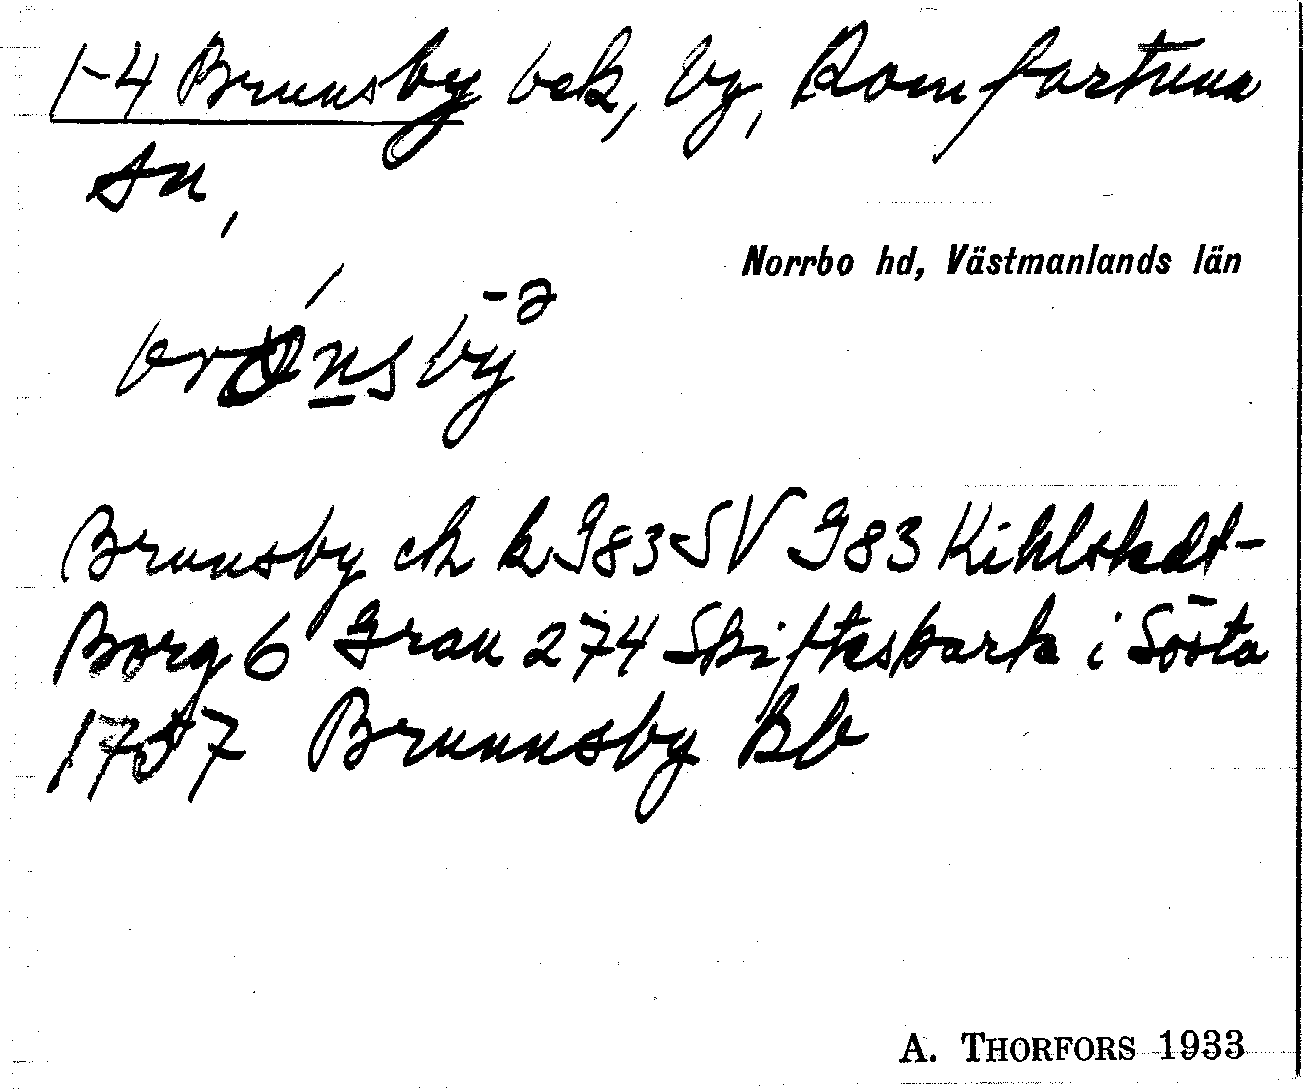 1-4 Brunsby bek, by, Romfartuna
sn,
Norrbo hd, Västmanlands län
Brunsby ek k J83 SV J83 Kihlstedt-
Borg 6 Grau 274 Skifteskarta i Sösta
1757 Brunnsby Bb
A. THORFORS 1933